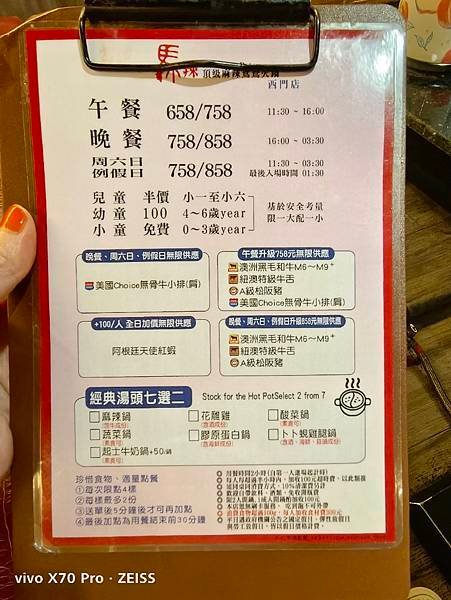 馬辣 頂級麻辣鴛鴦火鍋
西門店
午餐 658/758 11:30 ~ 16:00
晚餐 758/858 16:00 ~ 03:30
周六日
例假日 758/858 11:30 ~ 03:30
最後入場時間 01:30
兒童 半價 小一至小六
幼童 100 4~6歲year
小童 免費 0~3歲year
基於安全考量
限一大配一小
晚餐、周六日、例假日無限供應
美國Choice無骨牛小排(肩)
午餐升級758元無限供應
澳洲黑毛和牛M6~M9+
紐澳特級牛舌
A級松阪豬
美國Choice無骨牛小排(肩)
+100/人 全日加價無限供應
阿根廷天使紅蝦
晚餐、周六日、例假日升級858元無限供應
澳洲黑毛和牛M6~M9+
紐澳特級牛舌
A級松阪豬
經典湯頭七選二 Stock for the Hot PotSelect 2 from 7
麻辣鍋 花雕雞 酸菜鍋
(含牛成份) (含酒成份) (素食可)
蔬菜鍋 膠原蛋白鍋 卜卜蜆雞腿鍋
(素食可) (含海鮮成份)
起士牛奶鍋+50/鍋
(素食可)
珍惜食物、適量點餐
①每次限點4樣
②每樣最多2份
③送單後5分鐘才可再加點
④最後加點為用餐結束前30分鐘
vivo X70 Pro · ZEISS